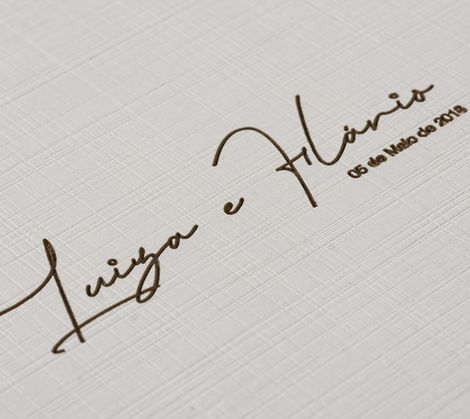 Luiza e Flávio
05 de Maio de 2018